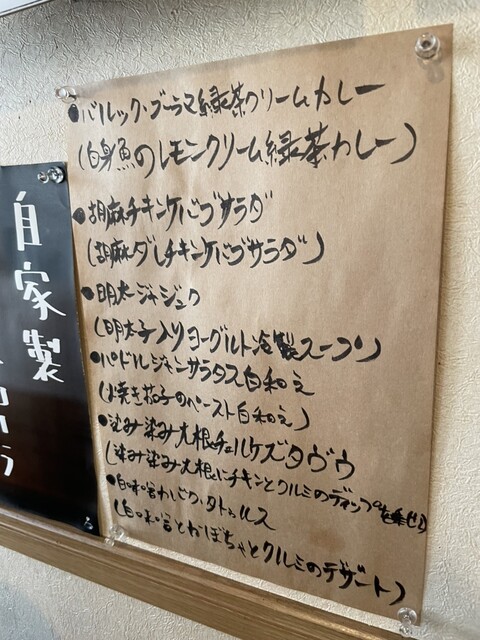 ●バルック・ブーラマ緑茶クリームカレー
(白身魚のレモンクリーム緑茶カレー)
●胡麻チキンケバブサラダ
(胡麻ダレチキンケバブサラダ)
●明太ジャジュク
(明太子入りヨーグルト冷製スープ)
●パトルジャンサラタス白和え
(焼き茄子のペースト白和え)
●染み染み大根チェルケズタヴウ
(染み染み大根にチキンとクルミのディップを乗せ)
●白味噌カバック・タトゥルス
(白味噌とかぼちゃとクルミのデザート)
自家製